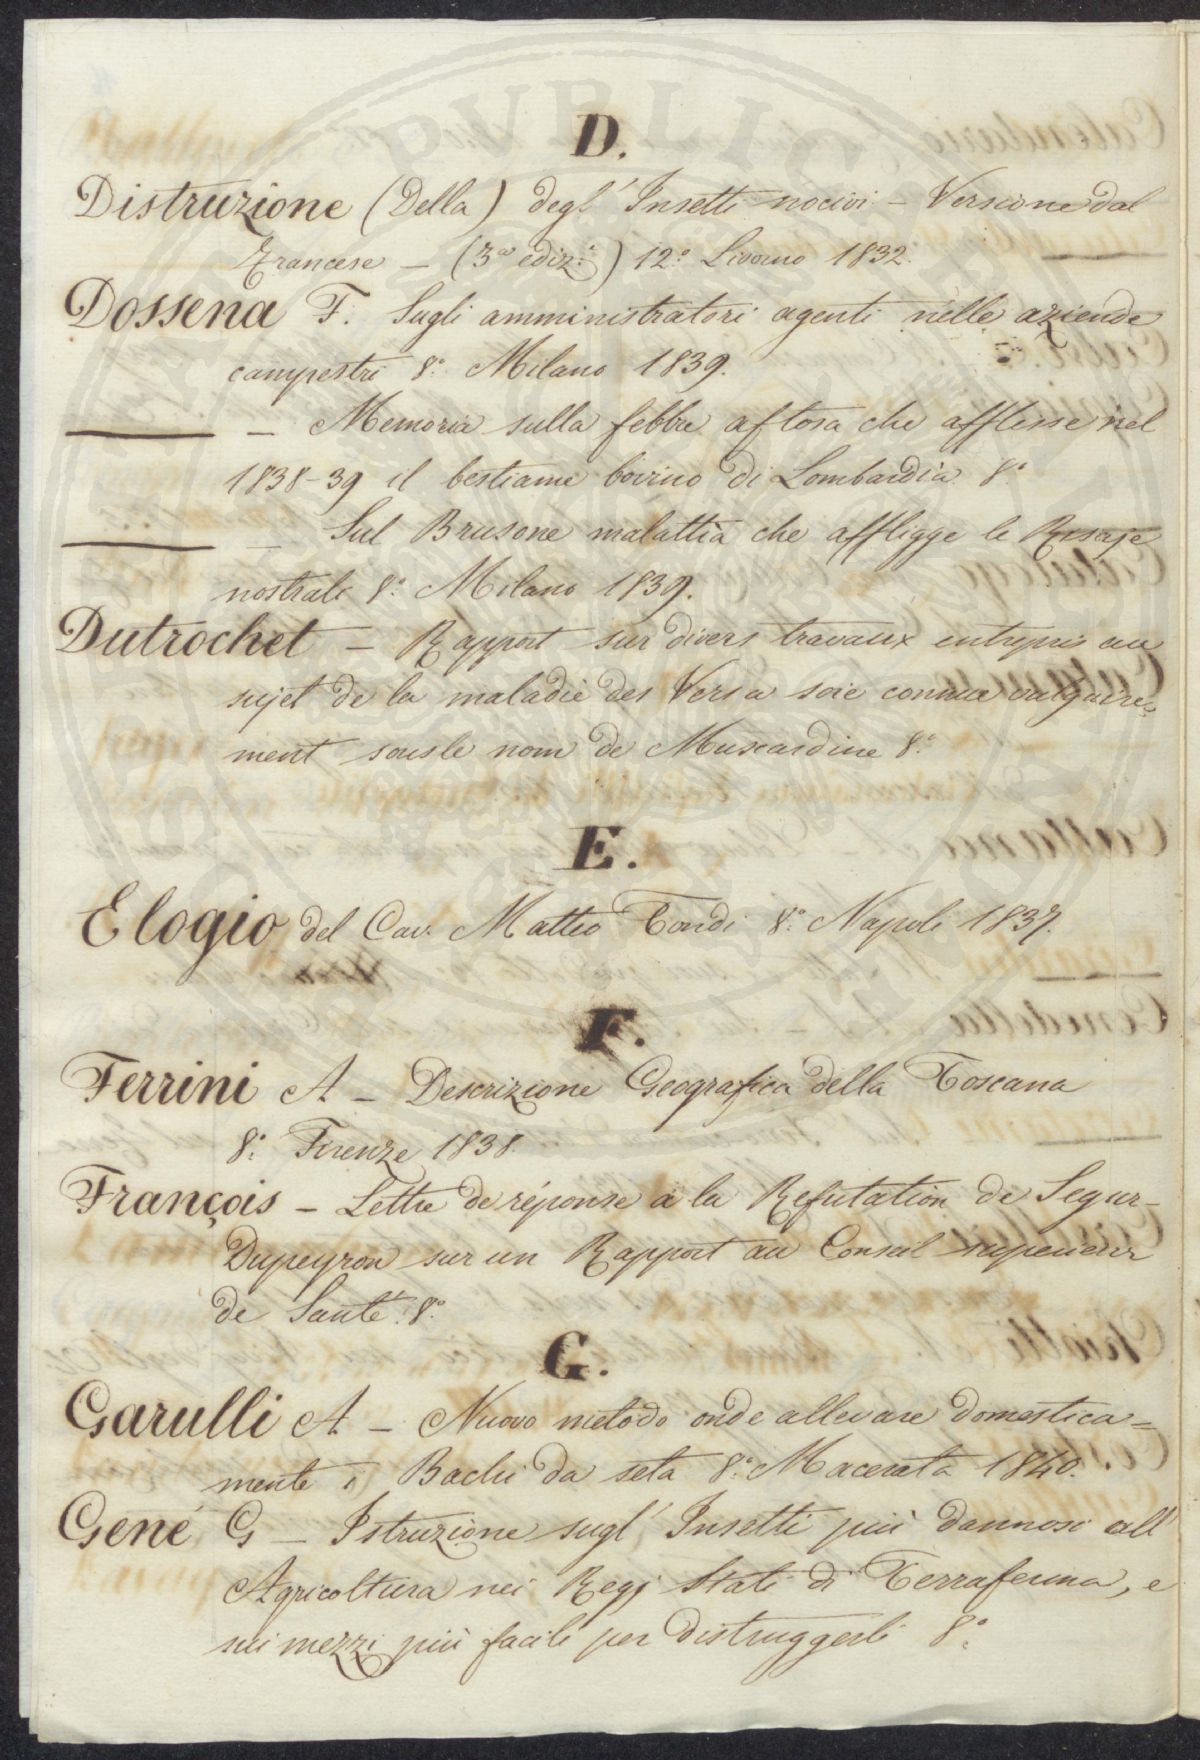 D.
Distruzione (Della) degl' Insetti nocivi – Versione dal
Francese – (3a ediz.e) 12.o Livorno 1832.
Dossena F. Sugli amministratori agenti nelle aziende
campestri 8.o Milano 1839.
——— – Memoria sulla febbre aftosa che afflisse nel
1838-39 il bestiame bovino di Lombardia 8.o
——— – Sul Brusone malattia che affligge le Risaje
nostrali 8.o Milano 1839.
Dutrochet – Rapport sur divers travaux entrepris au
sujet de la maladie des Vers a soie connue vulgaire=
ment sous le nom de Muscardine 8.o
E.
Elogio del Cav. Matteo Tondi 8.o Napoli 1837.
F.
Ferrini A – Descrizione Geografica della Toscana
8.o Firenze 1838.
François – Lettre de réponse a la Refutation de Segur-
Dupeyron sur un Rapport au Conseil superieur
de Santé 8.o
G.
Garulli A – Nuovo metodo onde allevare domestica=
mente i Bachi da seta 8.o Macerata 1840.
Gené G – Istruzione sugl' Insetti più dannosi all'
Agricoltura nei Regj Stati di Terraferma, e
sui mezzi più facili per distruggerli 8.o